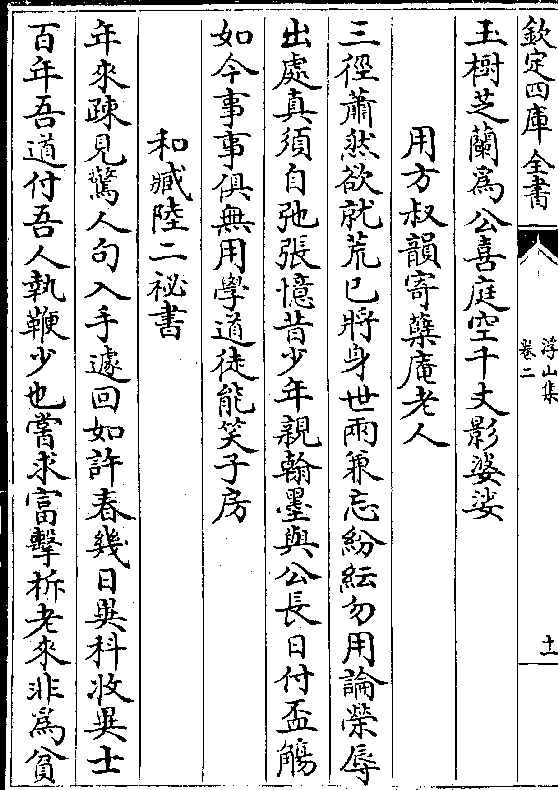 欽定四庫全書
浮山集
卷二
十一
玉樹芝蘭為公喜庭空千丈影婆娑
用方叔韻寄蘖庵老人
三徑蕭然欲就荒已將身世兩兼忘紛紜勿用論榮辱
出處真須自弛張憶昔少年親翰墨與公長日付盃觴
如今事事俱無用學道徒能笑子房
和臧陸二祕書
年來踈見驚人句入手遽回如許春幾日異科收異士
百年吾道付吾人執鞭少也嘗求富擊柝老來非為貧